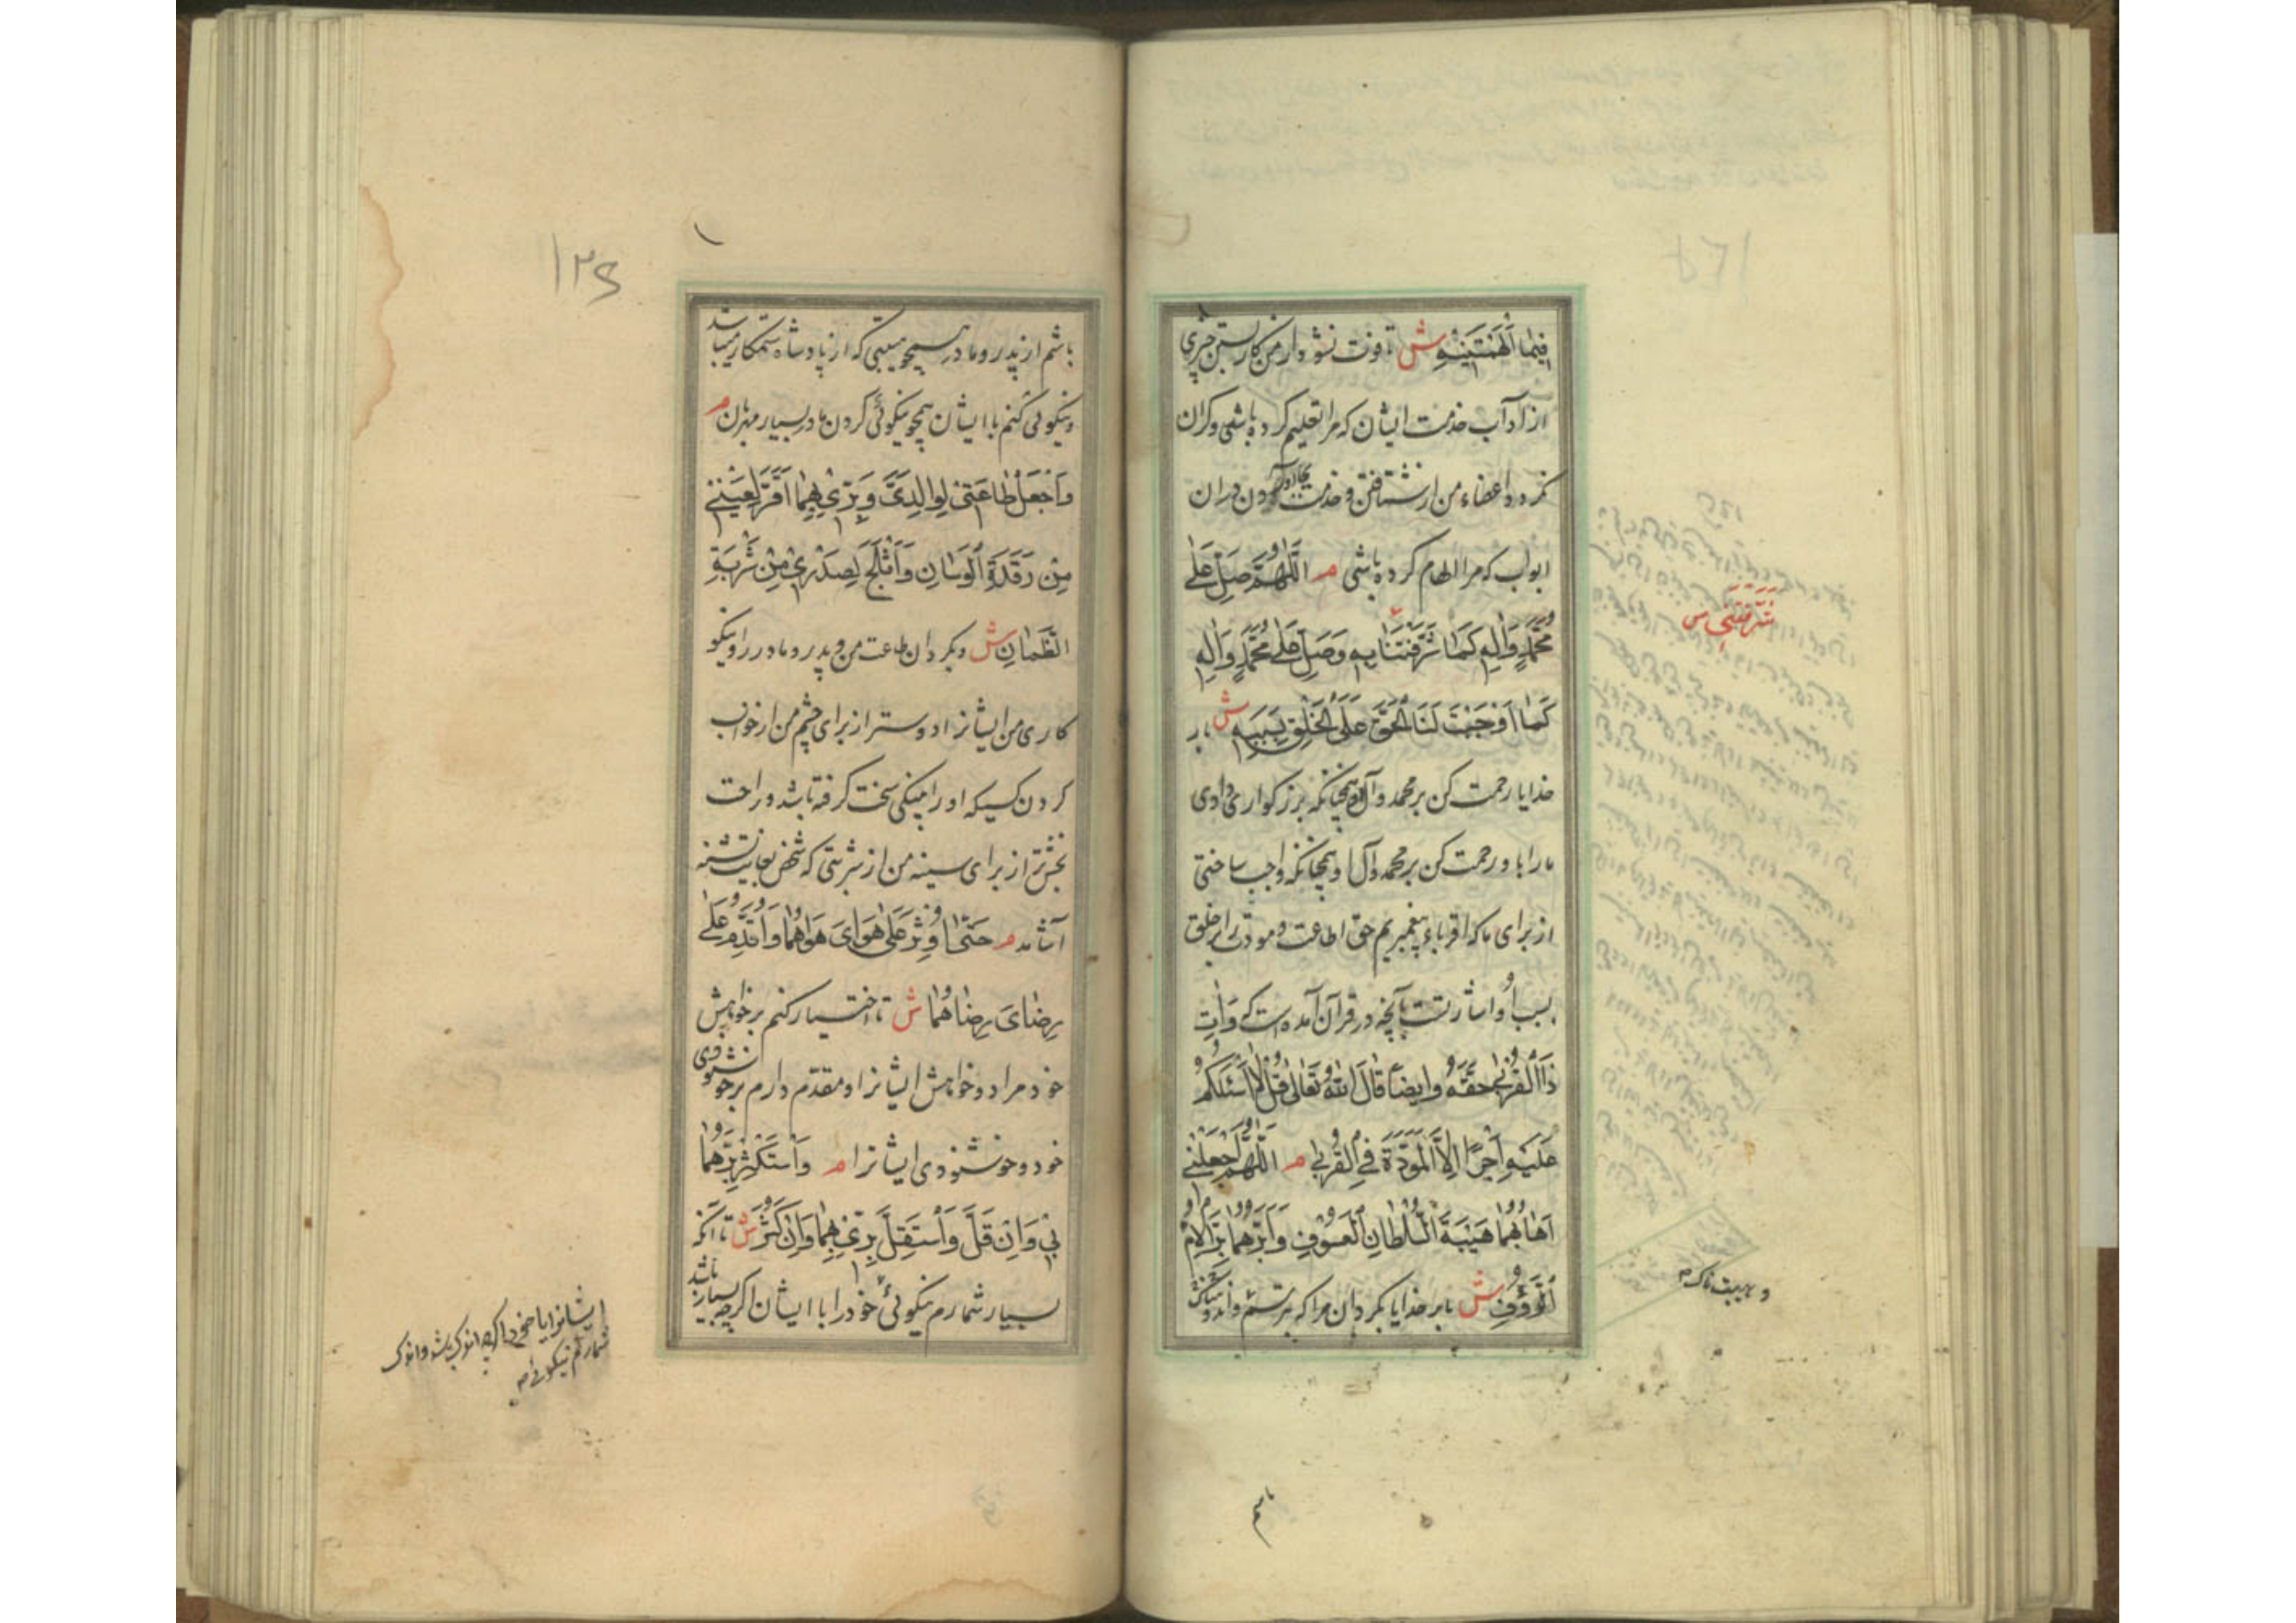 فِيمَا أَلْهَمْتَنِيهِ ش تا فوت نشود از من کار بستن چیزی
از آداب خدمت ایشان که مرا تعلیم کرده باشی و گران
نگردد اعضاء من از شتافتن و خدمت بجا آوردن در آن
ابواب که مرا الهام کرده باشی م اَللّٰهُمَّ صَلِّ عَلٰى
مُحَمَّدٍ وَاٰلِهِ كَمَا شَرَّفْتَنَا بِهِ وَصَلِّ عَلٰى مُحَمَّدٍ وَاٰلِهِ
كَمَا اَوْجَبْتَ لَنَا الْحَقَّ عَلَى الْخَلْقِ بِسَبَبِهِ ش بار
خدایا رحمت کن بر محمد و آل او همچنانکه بزرگواری دادی
ما را باو رحمت کن بر محمد و آل او همچنانکه واجب ساختی
از برای ما که اقرباء پیغمبریم حق اطاعت و مودت را بر خلق
بسبب او و اشارتست بآنچه در قرآن آمده است که وَاٰتِ
ذَا الْقُرْبٰى حَقَّهُ وايضاً قَالَ اللهُ تَعَالٰى قُلْ لَا اَسْئَلُكُمْ
عَلَيْهِ اَجْرًا اِلَّا الْمَوَدَّةَ فِي الْقُرْبٰى م اَللّٰهُمَّ اجْعَلْنِي
اَهَابُهُمَا هَيْبَةَ السُّلْطَانِ الْعَسُوفِ وَاَبَرُّهُمَا بِرَّ الْاُمِّ
الرَّؤُفِ ش بار خدایا بگردان مرا که بترسم و اندیشناک
شَرَّفْتَنِي س
و هیبت ناک م
باشم
١٢٤
باشم از پدر و مادر همچو هیبتی که از پادشاه ستمکار میباشد
و نیکوئی کنم با ایشان همچو نیکوئی کردن مادر بسیار مهربان م
وَاجْعَلْ طَاعَتِي لِوَالِدَيَّ وَبِرِّي بِهِمَا اَقَرَّ لِعَيْنِي
مِنْ رَقْدَةِ الْوَسْنَانِ وَاَثْلَجَ لِصَدْرِي مِنْ شَرْبَةِ
الظَّمْاٰنِ ش و بگردان طاعت من و پدر و مادر را و نیکو
کاری من ایشانرا دوستر از برای چشم من از خواب
کردن کسیکه او را پینکی سخت گرفته باشد و راحت
بخش‌تر از برای سینه من از شربتی که شخص بغایت تشنه
آشامد م حَتّٰى اُوثِرَ عَلٰى هَوَايَ هَوَاهُمَا وَاُقَدِّمَ عَلٰى
رِضَايَ رِضَاهُمَا ش تا اختیار کنم بر خواهش
خود مراد و خواهش ایشانرا و مقدم دارم بر خوشنودی
خود و خوشنودی ایشانرا م وَاَسْتَكْثِرَ بِرَّهُمَا
بِي وَاِنْ قَلَّ وَاَسْتَقِلَّ بِرِّي بِهِمَا وَاِنْ كَثُرَ ش تا آنکه
بسیار شمارم نیکوئی خود را با ایشان اگرچه بسیار باشد
ایشانرا با خود اگرچه اندک باشد و اندک
شمارم نیکوئی م